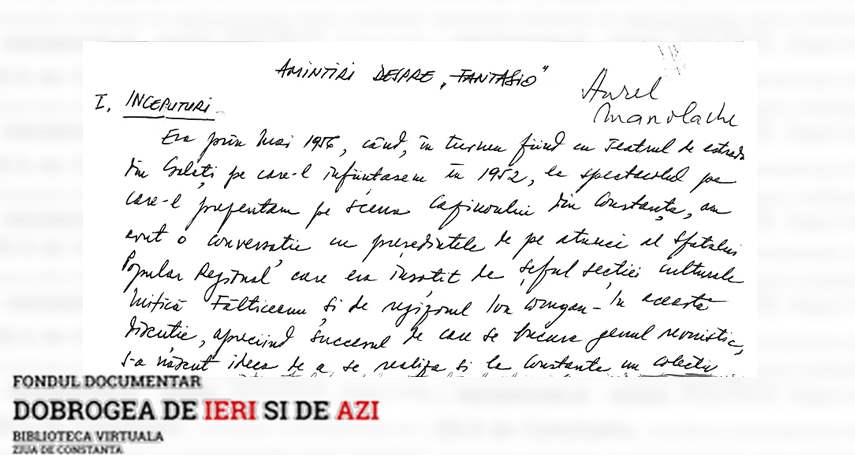 AMINTIRI DESPRE „FANTASIO"
Aurel
Manolache
I. INCEPUTURI
Era prin Mai 1956, când, în turneu fiind cu Teatrul de estradă
din Galați pe care-l înființasem în 1952, la spectacolul pe
care-l prezentam pe scena Cazinoului din Constanța, am
avut o conversație cu președintele de pe atunci al Sfatului
Popular Regional care era însoțit de șeful secției culturale
Mitică Fălticeanu și de regizorul Ion – In această
discuție, apreciind succesul de care se bucura genul revuistic,
s-a născut ideea de a se realiza și la Constanța un colectiv
FONDUL DOCUMENTAR
DOBROGEA DE IERI SI DE AZI
BIBLIOTECA VIRTUALA
ZIUA DE CONSTANTA